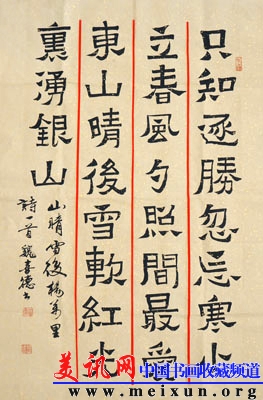 只知逐勝忽忘寒小
立春風夕照間最愛
東山晴後雪軟紅光
裏湧銀山
山晴雪後楊萬里
詩一首魏喜德书
美讯网 中国书画收藏频道
www.meixun.org